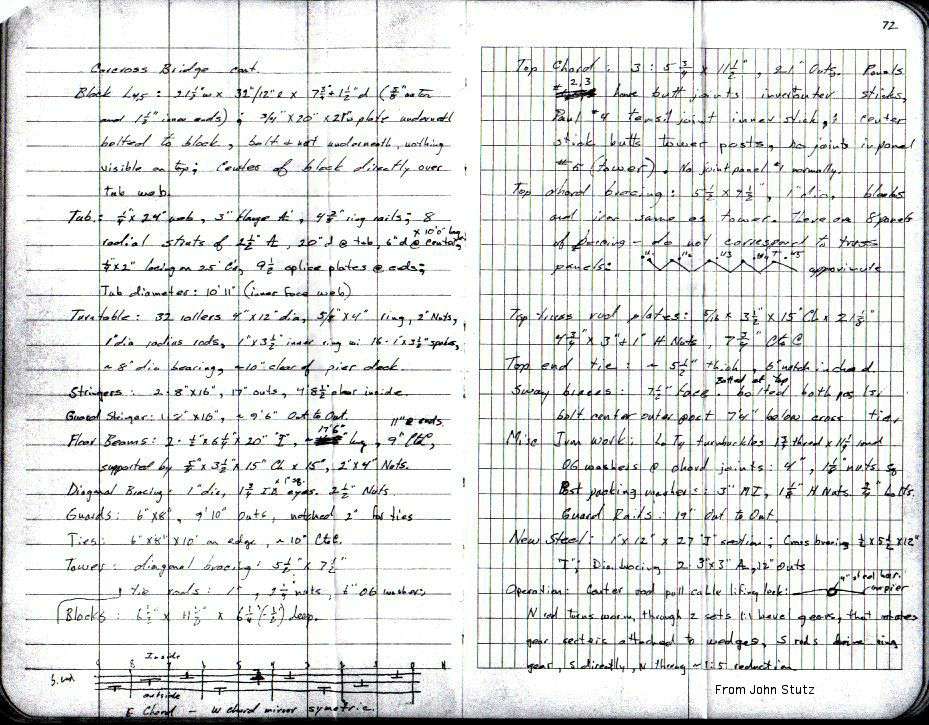 Carcross Bridge cont.
Block L45 : 21½"w x 32"/12"l x 7¾"+1½"d ( outer
and 1½" inner ends) ; 3/4" x 20" x plate underneath
bolted to block, bolt + nut underneath, nothing
visible on top; Center of block directly over
tub web.
Tub.: ¼" x 24" web, 3" flange, ring rails; 8
radial struts of 2½", 20"d @ tub, 6"d @ center, x 10'0" long
lacing on 25 C's, 9½ splice plates @ ends;
Tub diameter: 10'11" (inner face web)
Turntable: 32 rollers 4" x 12" dia, 5/8" x 4" ring, 2" Nuts,
1" dia radius rods, 1" x 3½" inner ring w: 16 - 1" x 3½" spokes,
~ 8" dia bearing, ~10" clear of pier deck
Stringers: 2: 8"x16", 17" outs, clear inside
Guard Stringer: x 16", ~ 9'6" Out to Out. 11" @ ends
Floor Beams: 2 - ½ x 6¼" x 20" I, 17'6" lng, 9" CtC,
supported by x 3½ x 15" Ch x 15", 2"x4" Nuts.
Diagonal Bracing: 1" dia, eyes. 2½" Nuts.
Guards: 6"x8", 9'10" Outs, notched 2" for ties
Ties: 6"x8"x10' on edge, ~ 10" CtC.
Tower: diagonal bracing: 5½ x 7½"
tie rods: 1", nuts, 6" OG washers
Blocks: 6½ x 11½ x 6¼ deep.
Inside
outside
E Chord - W chord mirror symetric.
72
Top Chord: 3: 5¾ x 11½", 2nd" Outs. Panels
# 2,3 have butt joints inner/outer sticks,
Panel #4 tensil joint inner stick, & center
stick butts tower posts, no joints in panel
#5 (tower). No joint panel #1 normally.
Top chord bracing: 5½ x 7½", 1" dia. blocks
and iron same as tower. There are 8 panels
of bracing - do not correspond to truss
panels: U1 U2 U3 U4 T U5 approximate
Top truss rod plates: 5/16 x 3½" x 15" Ch x 21½"
4¾" x 3" + 1" H Nuts, 7¾" CtC
Top end tie: ~ 5½" thick, 6" notch inched
Sway braces: 7½" face. bolted at top bolted both posts;
bolt center outer post 7'4" below cross tie.
Misc Iron work: turnbuckles thread x 11½ end
OG washers @ chord joints: 4", 1½ nuts sq
Post packing washers: 3" MI, 1⅛" H Nuts. ¾" bolts.
Guard Rails: 19" Out to Out.
New Steel: 1" x 12" x 27 "I" section; Cross bracing ½ x 5½ x 12"
"I"; Dia. bracing 2 3"x3" A, 12" outs
Operation: Center rod pull cable lifting lock: 4" steel bar. on pier
N rod turns worm, through 2 sets 1:1 bevel gears, that rotates
gear sectors attached to wedges, S rods drive ring
gear, S directly, N through ~1:5 reduction.
From John Stutz